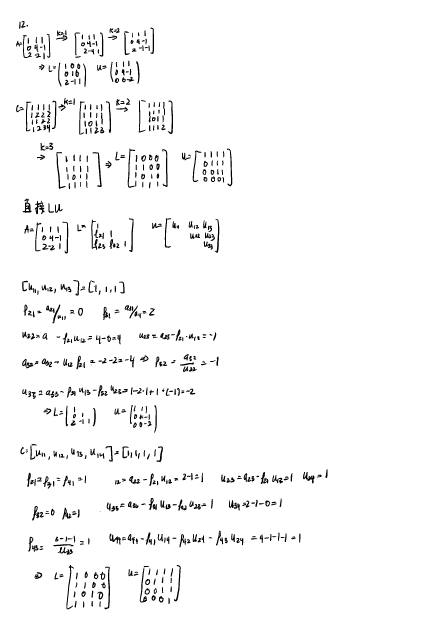 12.
A=[1 1 1; 0 4 -1; 2 -2 1] →(k=1) [1 1 1; 0 4 -1; 2 -4 -1] →(k=2) [1 1 1; 0 4 -1; 2 -1 -1]
⇒ L=(1 0 0; 0 1 0; 2 -1 1) U=(1 1 1; 0 4 -1; 0 0 -2)
C=[1 1 1 1; 1 2 2 2; 1 1 2 2; 1 2 3 4] →(k=1) [1 1 1 1; 1 1 1 1; 1 0 1 1; 1 1 2 3] →(k=2) [1 1 1 1; 1 1 1 1; 1 0 1 1; 1 1 1 2]
→(k=3) [1 1 1 1; 1 1 1 1; 1 0 1 1; 1 1 1 1] ⇒ L=[1 0 0 0; 1 1 0 0; 1 0 1 0; 1 1 1 1] U=[1 1 1 1; 0 1 1 1; 0 0 1 1; 0 0 0 1]
直接LU
A=[1 1 1; 0 4 -1; 2 -2 1] U=[u11 u12 u13; u22 u23; u33]
[u11, u12, u13]=[1, 1, 1]
l21=a21/u11=0 =2
u22=a -l21u12=4-0=4 u23=a23-l21·u13=-1
=-2-2=-4 ⇒ l32= /u22=-1
u33=a33-l31u13-l32u23=1-2·1+1·(-1)=-2
⇒ L=[1; 0 1; 2 -1 1] U=[1 1 1; 0 4 -1; 0 0 -2]
C: [u11, u12, u13, u14]=[1,1,1,1]
l21=l31=l41=1 =a22-l21u12=2-1=1 u23=a23-l21u13=1 u24=1
l32=0 l42=1 u33=a33-l31u13-l32u23=1 u34=2-1-0=1
l43= 3-1-1/u33=1 u44=a44-l41u14-l42u24-l43u34=4-1-1-1=1
⇒ L=[1 0 0 0; 1 1 0 0; 1 0 1 0; 1 1 1 1] U=[1 1 1 1; 0 1 1 1; 0 0 1 1; 0 0 0 1]